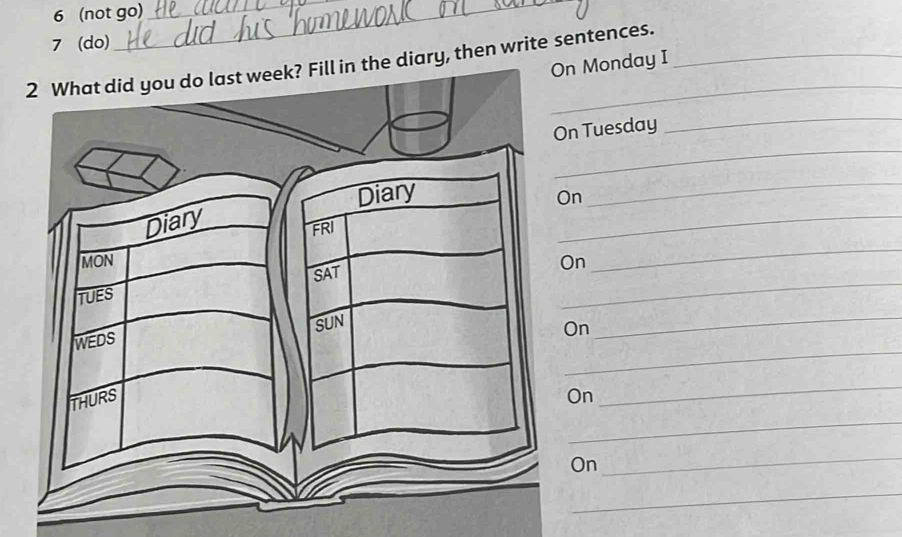 6 (not go) He didn't go
7 (do) He did his homework on
2 What did you do last week? Fill in the diary, then write sentences.
Diary
MON
TUES
WEDS
THURS
Diary
FRI
SAT
SUN
On Monday I
On Tuesday
On
On
On
On
On